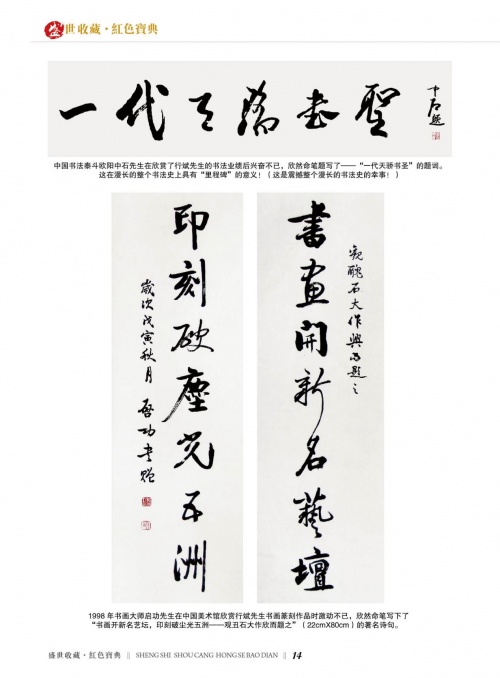 盛世收藏·紅色寶典
一代天骄书聖
中石题
中国书法泰斗欧阳中石先生在欣赏了行斌先生的书法业绩后兴奋不已，欣然命笔题写了——“一代天骄书圣”的题词。
这在漫长的整个书法史上具有“里程碑”的意义！（这是震撼整个漫长的书法史的幸事！）
观醜石大作興而题之
書画開新名藝壇
印刻破塵光五洲
歲次戊寅秋月 啓功書贈
1998 年书画大师启功先生在中国美术馆欣赏行斌先生书画篆刻作品时激动不已，欣然命笔写下了
“书画开新名艺坛，印刻破尘光五洲——观丑石大作欣而题之”（22cmX80cm）的著名诗句。
盛世收藏·红色寶典 || SHENG SHI SHOU CANG HONG SE BAO DIAN || 14